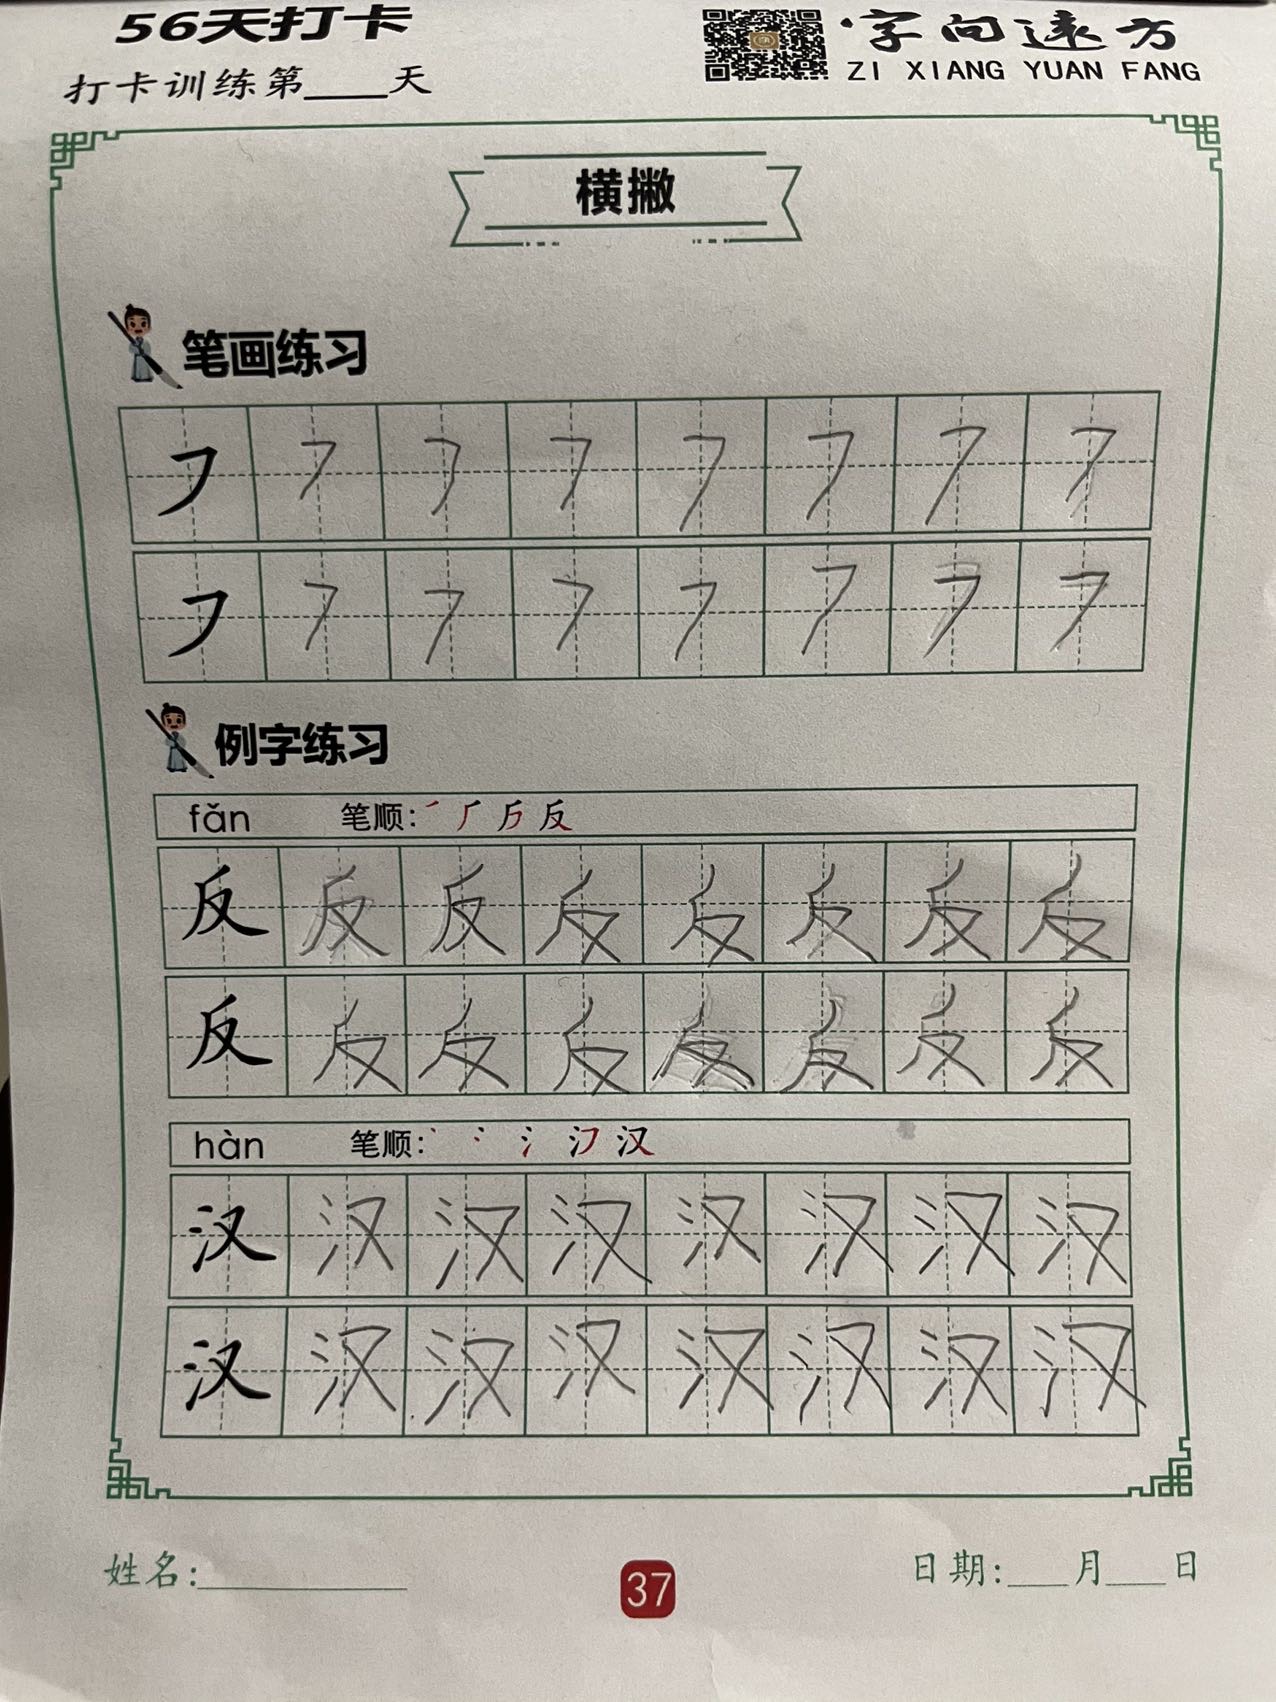 56天打卡
字向远方
打卡训练第____天
ZI XIANG YUAN FANG
横撇
笔画练习
㇇ ㇇ ㇇ ㇇ ㇇ ㇇ ㇇ ㇇
㇇ ㇇ ㇇ ㇇ ㇇ ㇇ ㇇ ㇇
例字练习
fǎn 笔顺: ㇒ 厂 反
反 反 反 反 反 反 反 反
反 反 反 反 反 反 反 反
hàn 笔顺: 丶 冫 氵 汉
汉 汉 汉 汉 汉 汉 汉 汉
汉 汉 汉 汉 汉 汉 汉 汉
姓名:__________
37
日期:___月___日